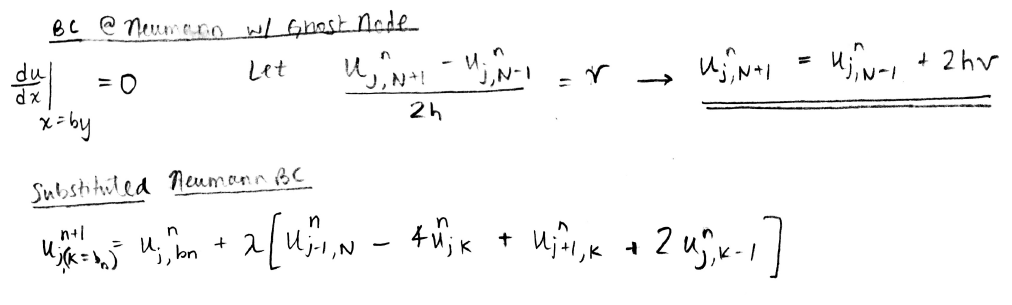 BC @ Neumann w/ Ghost Node
du/dx | x=by = 0 Let (u^n_{j,N+1} - u^n_{j,N-1}) / 2h = r → u^n_{j,N+1} = u^n_{j,N-1} + 2hr
Substituted Neumann BC
u^{n+1}_{j,(k=b_n)} = u^n_{j,bn} + λ[u^n_{j-1,N} - 4u^n_{j,K} + u^n_{j+1,K} + 2u^n_{j,K-1}]